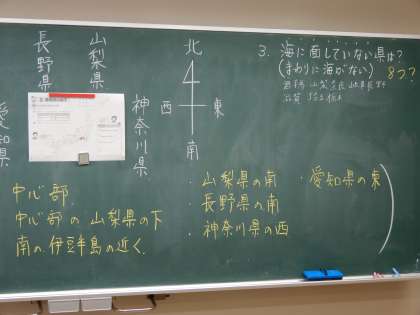 長野県
山梨県
愛知県
神奈川県
北
西
東
南
3. 海に面していない県は?
(まわりに海がない) 8つ?
群馬 山梨 奈良 岐阜 長野
滋賀 埼玉 栃木
中心部
中心部の山梨県の下
南の伊豆半島の近く
・山梨県の南
・長野県の南
・神奈川県の西
・愛知県の東